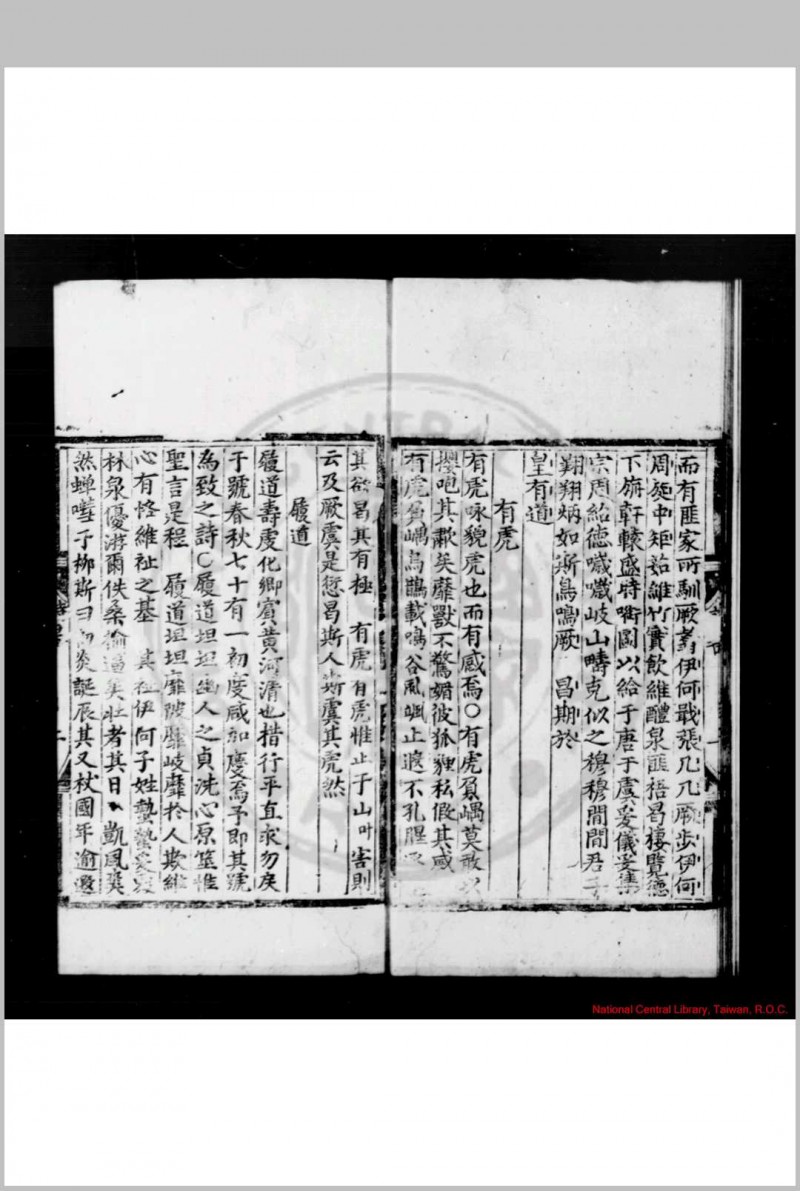 而有匪家所馴厥翥伊何戢張几几厥步伊何
周旋中矩茹維竹實飲維醴泉匪梧曷棲覽德
下旃軒轅盛時嘀圖以給于唐于虞爰儀爰集
宗周紹德噦噦岐山疇克似之穆穆閒閒君子
翺翔炳如斯鳥鳴厥昌期於
皇有道
有虎
有虎咏貌虎也而有感焉〇有虎負嵎莫敢以
攖咆其歗矣靡獸不驚媚彼狐狸私假其威
有虎負嵎烏鵲載鳴谷風颯止遐不孔腥
其欲曷其有極 有虎有虎惟止于山 害則
云及厥虞是愆曷斯人斯虞其虎然
履道
履道壽處化卿賓黃河清也措行平直求勿戾
于號春秋七十有一初度咸加慶焉予即其號
為致之詩〇履道坦坦幽人之貞洗心原筮惟
聖言是程 履道坦坦靡陂靡岐靡於人欺維
心有恪維祉之基 其祉伊何子姓蟄蟄
林泉優游爾佚桑榆 矣壯者其日 凱風巽
然蟬嘒于柳斯日 炎誕辰其又杖國年逾邀
National Central Library, Taiwan, R.O.C.